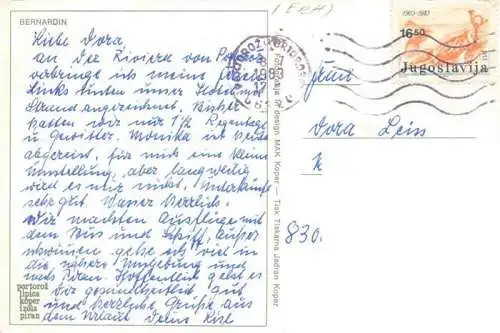 BERNARDIN
Liebe Dora
an der Riviera von
verbringe ich meine
Links unten unser Hotel mit
Strand angezeichnet. Bisher
hatten wir nur 1½ Regentage
u Gewitter. Monika ist heute
abgereist, für mich eine kleine
Umstellung, aber langweilig
wird es mir nicht. Unterkunft
sehr gut. Wasser herrlich.
Wir machten Ausflüge mit
dem Bus und Schiff, außer
schwimmen gehe ich viel in
die nähere Umgebung und
nach Piran. Hoffentlich geht es
Dir gesundheitlich gut
und herzliche Grüße aus
dem Urlaub Deine
portorož
lipica
koper
izola
piran
Tisk Tiskarna Jadran Koper
design MAK Koper
1983
17
16.50
Jugoslavija
Frau
Dora Leiss
830.